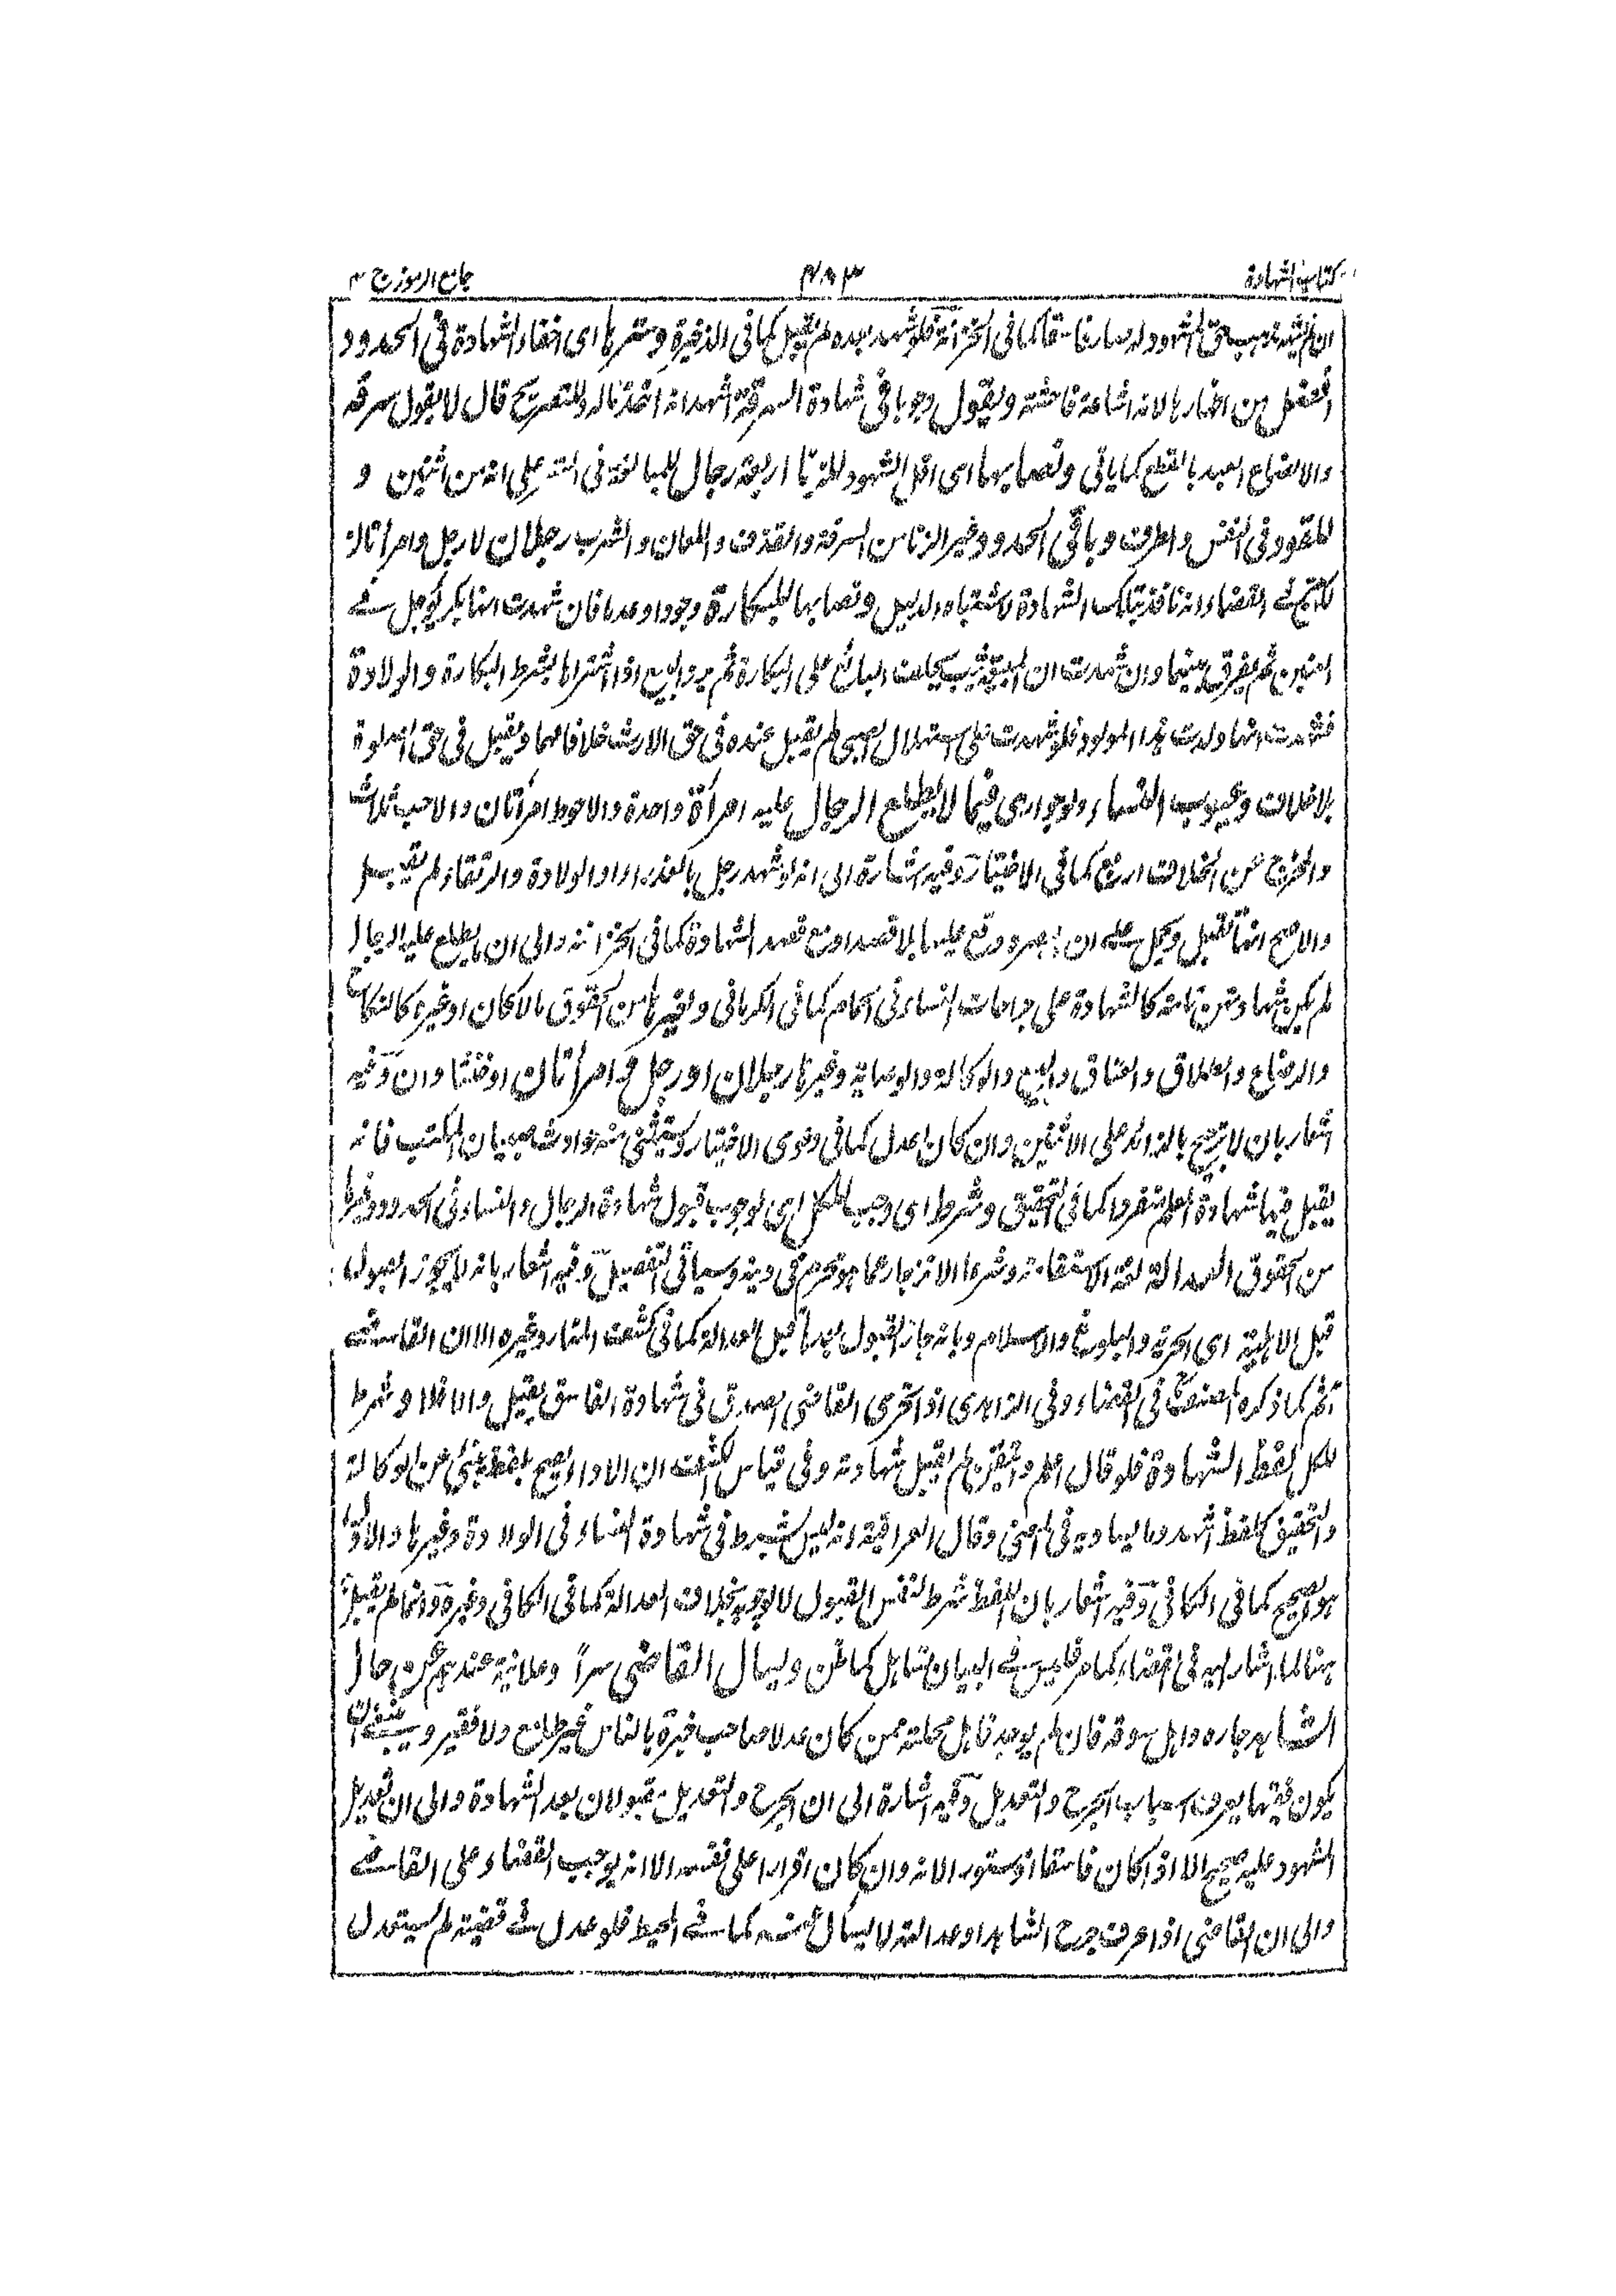 كتاب الشهادة ٤٨٣ جامع الرموز ج ٢
ان لم يشهد يذهب حق المشهود له صار فاسقا كما فى الخزانة فلو شهد بعده لم يقبل كما فى الذخيرة وسترها اى اخفاء الشهادة فى الحدود
افضل من اظهارها لانه اشاعة فاحشة ويقول وجوبا فى شهادة السرقة اشهد انه اخذ ماله وللتصريح قال لا يقول سرقه
والا لضاع العبد بالقطع كما ياتى ونصابها اى اقل الشهود للزنا اربعة رجال للمبالغة فى الستر على انه من اثنين و
للقود فى النفس والطرف وباقى الحدود وغير الزنا من السرقة والقذف واللعان والشرب رجلان لا رجل وامرأتان
القضاء انه نافذ بتلك الشهادة لاشتباه الدليل ونصابها للبكارة وجودا وعدما فان شهدت انها بكر يؤجل فے
العنين ثم يفرق بينهما وان شهدت ان المبيعة ثيب يحلف البائع على البكارة ثم يرد البيع اذا اشتراها بشرط البكارة والولادة
فشهدت انها ولدت هذا المولود فلو شهدت على استهلال الصبى لم يقبل عنده فى حق الارث خلافا لهما ويقبل فى حق الصلوة
بلا خلاف وعيوب النساء ولو جوارى فيما لا يطلع الرجال عليه امرأة واحدة والاحوط امرأتان والاحب ثلاث
والخروج عن الخلاف اربع كما فى الاختيار وفيه اشارة الى انه لو شهد رجل بالعذرة او الولادة والرتقاء لم يقبل
والاصح انها تقبل ويحمل علے ان بصره وقع عليها بلا قصد او مع قصد الشهادة كما فى الخزانة والى ان ما يطلع عليه الرجال
لم يكن شهادتهن تامة كالشهادة على جراحات النساء فى الحمام كما فى الكرمانى ولغيرها من الحقوق مالا كان او غيره كالنكاح
والرضاع والطلاق والعتاق والبيع والوكالة والوصاية وغيرها رجلان او رجل وامرأتان او خنثيان وفيه
اشعار بان لا ترجيح بالزائد على الاثنين وان كان اعدل كما فى دعوى الاختيار ويستثنى منه حوادث صبيان المكتب فانه
يقبل فيها شهادة المعلم منفردا كما فى التحقيق وشرط اى وجب للكل اى لوجوب قبول شهادة الرجال والنساء فى الحدود وغيرها
من الحقوق العدالة لغة الاستقامة وشرعا الانزجار عما هو محرم فى دينه وسياتى التفصيل وفيه اشعار بانه لا يجوز القبول
قبل الاهلية اى الحرية والبلوغ والاسلام وبانه جاز القبول بعدها قبل العدالة كما فى كشف المنار وغيره الا ان القاضے
آثم كما ذكره المصنف فى القضاء وفى الزاهدى اذا تحرى القاضى الصدق فى شهادة الفاسق يقبل والا فلا وشرط
للكل لفظ الشهادة فلو قال اعلم واتيقن لم يقبل شهادته وفى قياس الكشف ان الاداء يصح بلفظ ينبئ عن الوكالة
والتحقيق كلفظ اشهد وما يساويه فى المعنى وقال العراقية انه ليس بشرط فى شهادة النساء فى الولادة وغيرها والاول
هو الصحيح كما فى الكافى وفيه اشعار بان اللفظ شرط لنفس القبول لا لوجوبه بخلاف العدالة كما فى الكافى وغيره وانما لم يقبل
هنا لما اشار اليه فى القضاء كما مر فليس فے البيان تساهل كما ظن ويسأل القاضى سرا وعلانية عندهم عن حال
الشاهد جاره واهل سوقه فان لم يوجد فاهل محلته ممن كان عدلا صاحب خبرة بالناس غير طامع ولا فقير وينبغے ان
يكون فقيها يعرف اسباب الجرح والتعديل وفيه اشارة الى ان الجرح والتعديل مقبولان بعد الشهادة والى ان تعديل
المشهود عليه صحيح الا اذا كان فاسقا او مستورا لانه وان كان اقرارا على نفسه الا انه يوجب القضاء على القاضے
والى ان القاضى اذا عرف جرح الشاهد او عدالته لا يسأل عنه كما فے المحيط فلو عدل فے قضية لم يستعدل